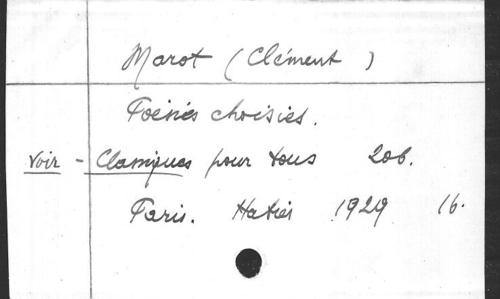 Marot (Clément )
Poésies choisies.
Voir - Classiques pour tous 206.
Paris. Hatier 1929 16.